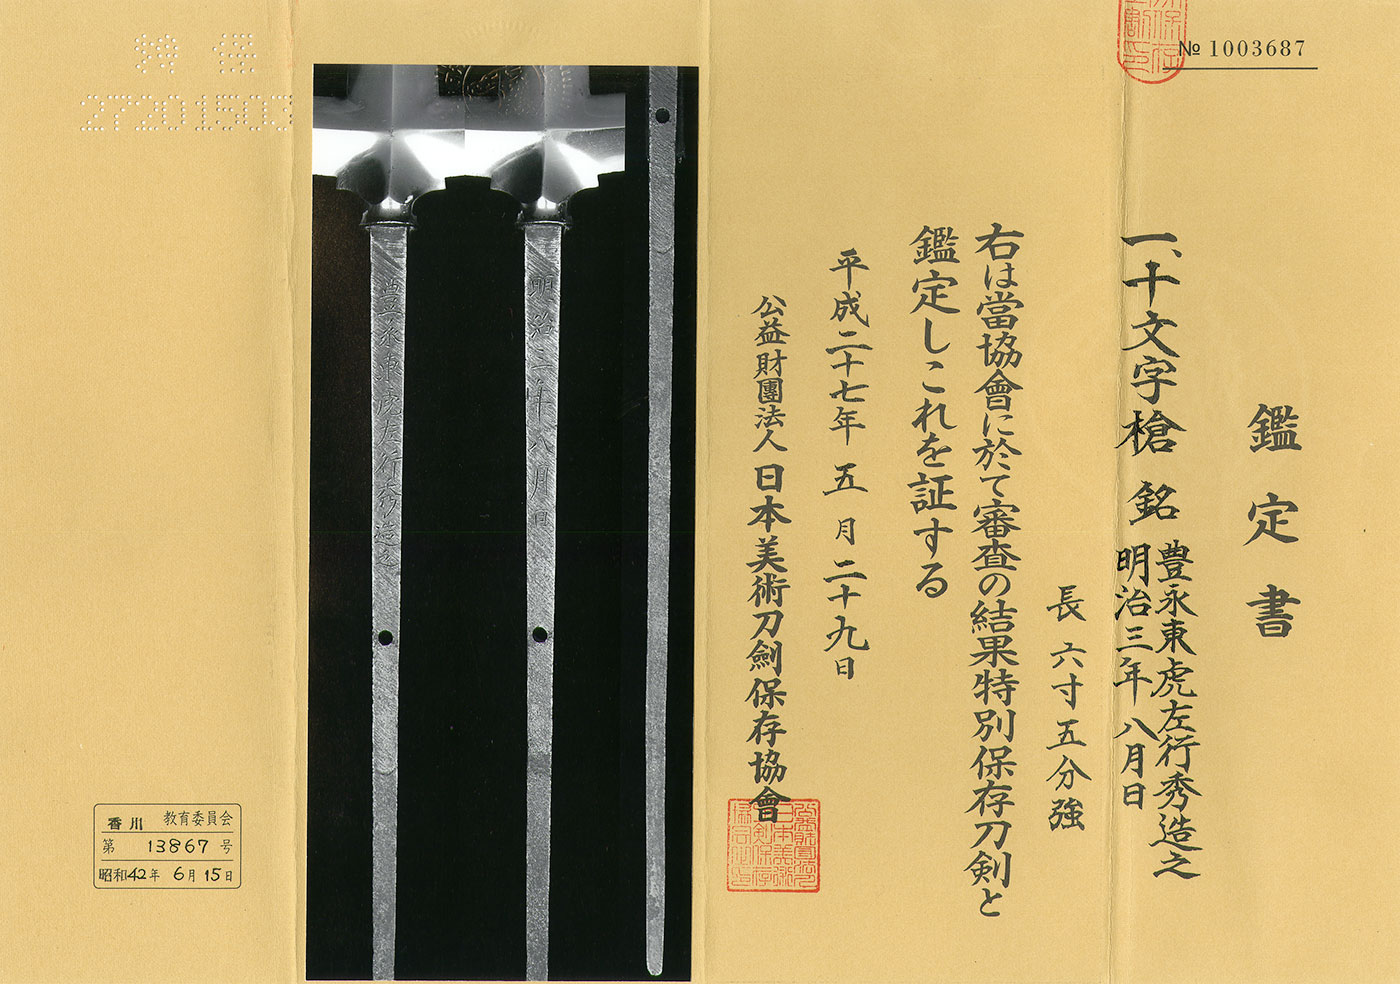 № 1003687
鑑定書
一、十文字槍 銘 豊永東虎左行秀造之
明治三年八月日
長 六寸五分強
右は當協會に於て審査の結果特別保存刀剣と
鑑定しこれを証する
平成二十七年 五月二十九日
公益財團法人 日本美術刀劍保存協會
明治三年八月日
豊永東虎左行秀造之
27201503
香川 教育委員会
第 13867 号
昭和42年 6月15日